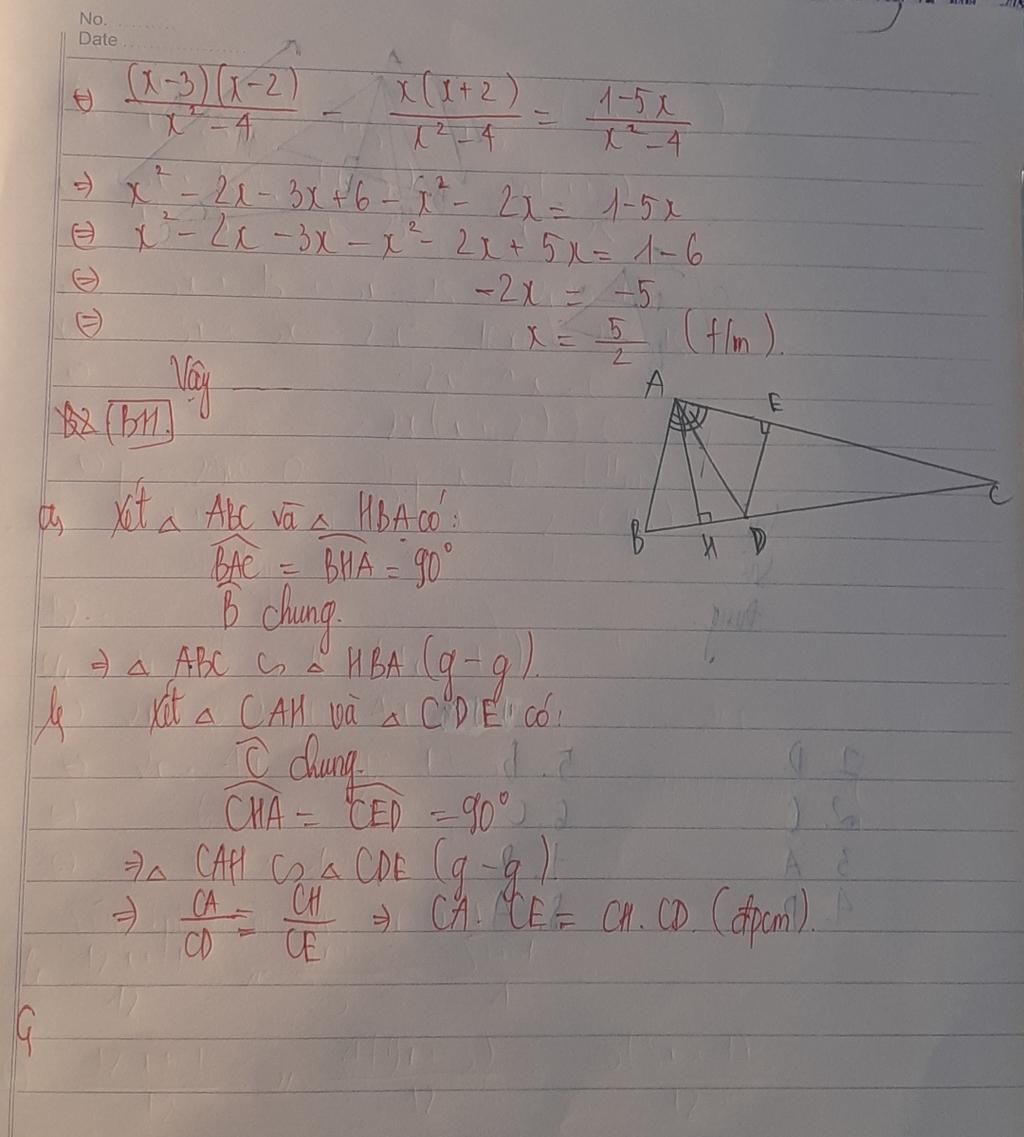 No. ..........
Date ....................
⇔ (x-3)(x-2)/x²-4 - x(x+2)/x²-4 = 1-5x/x²-4
⇒ x² - 2x - 3x + 6 - x² - 2x = 1-5x
⇔ x² - 2x - 3x - x² - 2x + 5x = 1-6
⇔ -2x = -5
⇔ x = 5/2 (t/m).
Vậy
A
E
C
B
H
D
a, Xét △ ABC và △ HBA có:
BAC = BHA = 90°
B chung.
⇒ △ ABC ∽ △ HBA (g-g).
Xét △ CAH và △ CDE có:
C chung.
CHA = CED = 90°
⇒ △ CAH ∽ △ CDE (g-g)
⇒ CA/CD = CH/CE ⇒ CA. CE = CH. CD. (đpcm).